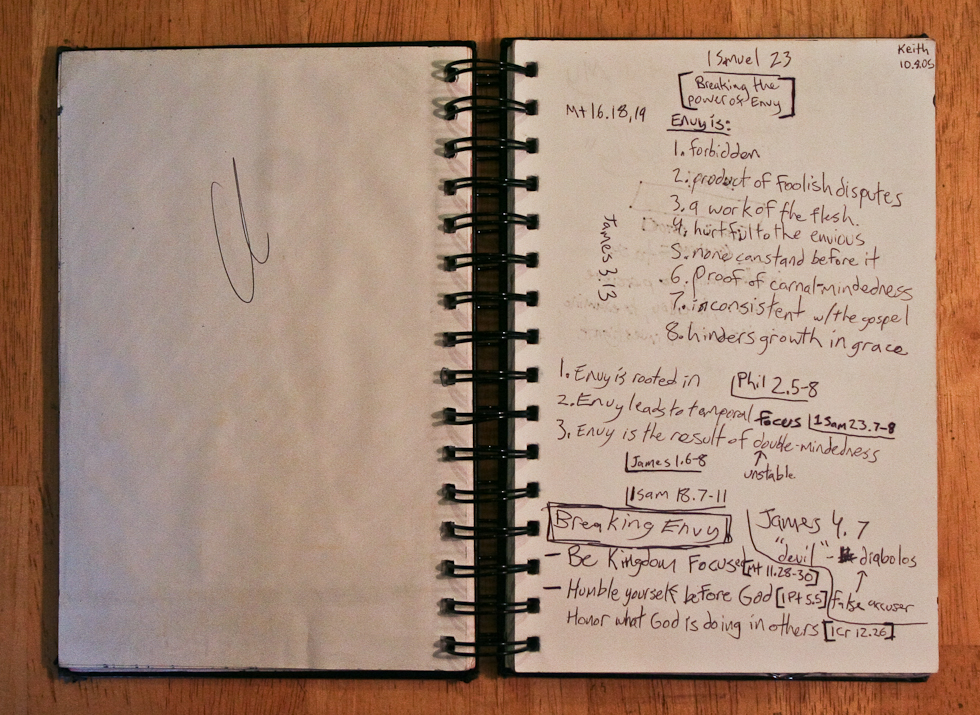 Keith
10.9.05
1 Smuel 23
Breaking the
power of Envy
Mt 16.18,19
Envy is:
1. forbidden
2. product of foolish disputes
3. a work of the flesh.
4. hurtful to the envious
5. none can stand before it
6. Proof of carnal-mindedness
7. inconsistent w/the gospel
8. hinders growth in grace
James 3.13
1. Envy is rooted in Phil 2.5-8
2. Envy leads to temporal focus 1 Sam 23.7-8
3. Envy is the result of double-mindedness
James 1.6-8
unstable
1 Sam 18.7-11
Breaking Envy
James 4.7
"devil" - diabolos
- Be Kingdom Focused [Mt 11.28-30]
- Humble yourself before God [1 Pt 5.5]
false accuser
Honor what God is doing in others [1 Cr 12.26]